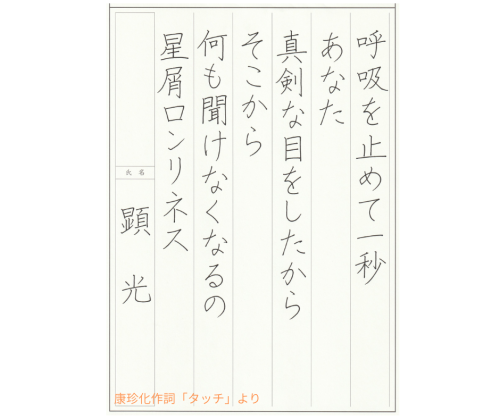 呼吸を止めて一秒
あなた
真剣な目をしたから
そこから
何も聞けなくなるの
星屑ロンリネス
氏名
顕光
康珍化作詞「タッチ」より